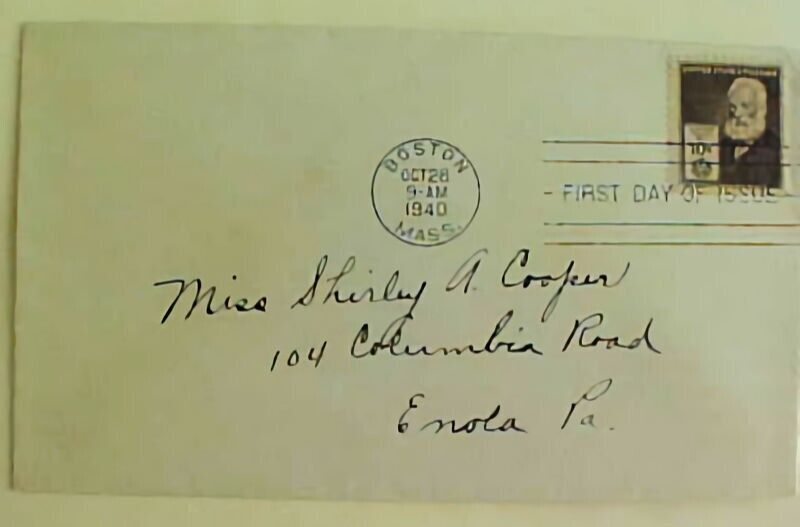 UNITED STATES POSTAGE
10¢
BOSTON
OCT 28
9-AM
1940
MASS.
FIRST DAY OF ISSUE
Miss Shirley A. Cooper
104 Columbia Road
Enola Pa.